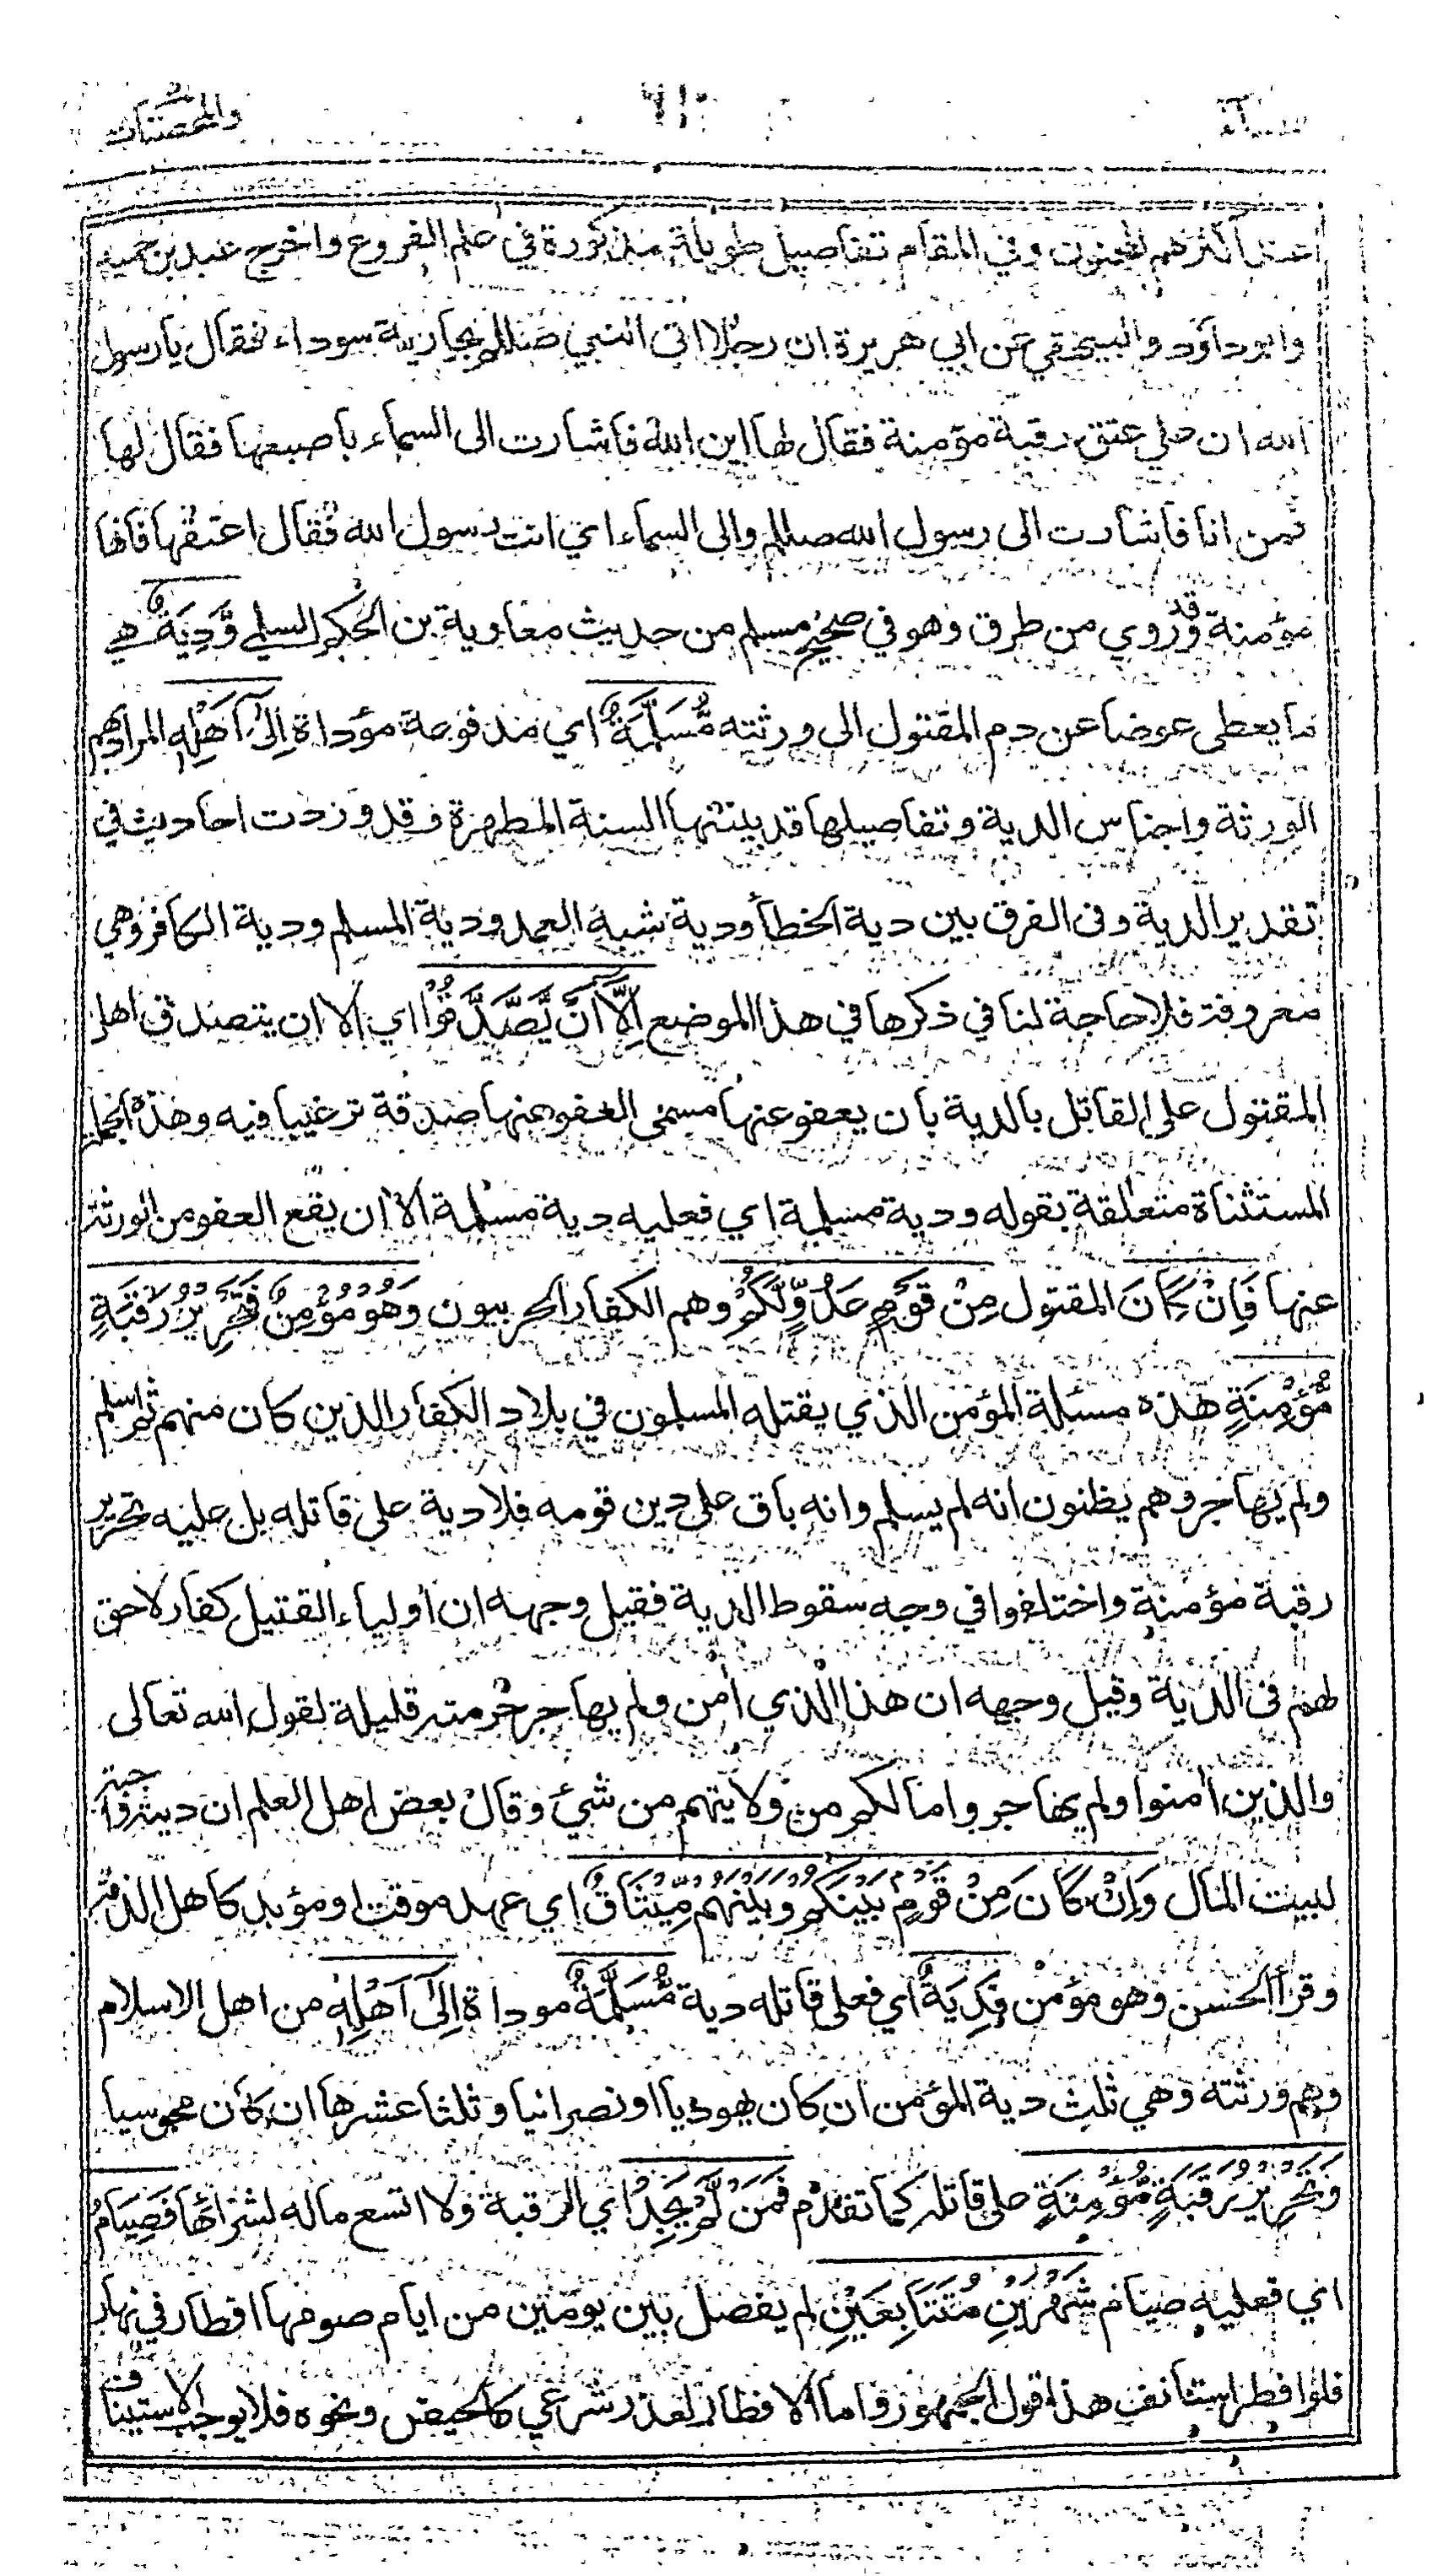 والمحصنات
عند أكثرهم المجنون وفي المقام تفاصيل طويلة مذكورة في علم الفروع واخرج عبد بن حميد
وابو داؤد والبيهقي عن ابي هريرة ان رجلا اتى النبي صللم بجارية سوداء فقال يا رسول
الله ان علي عتق رقبة مؤمنة فقال لها اين الله فاشارت الى السماء باصبعها فقال لها
فمن انا فاشارت الى رسول الله صللم والى السماء اي انت رسول الله فقال اعتقها فانها
مؤمنة وقد روي من طرق وهو في صحيح مسلم من حديث معاوية بن الحكم السلمي وَّدِيَةٌ هي
ما يعطى عوضا عن دم المقتول الى ورثته مُّسَلَّمَةٌ اي مدفوعة مؤداة اِلٰٓى اَهْلِهٖ المراد بهم
الورثة واجناس الدية وتفاصيلها قد بينتها السنة المطهرة وقد وردت احاديث في
تقدير الدية وفى الفرق بين دية الخطأ ودية شبه العمد ودية المسلم ودية الكافر وهي
معروفة فلا حاجة لنا في ذكرها في هذا الموضع اِلَّآ اَنْ يَّصَّدَّقُوْا اي الا ان يتصدق اهل
المقتول على القاتل بالدية بان يعفو عنها مسمى العفو عنها صدقة ترغيبا فيه وهذه الجملة
المستثناة متعلقة بقوله ودية مسلمة اي فعليه دية مسلمة الا ان يقع العفو من الورثة
عنها فَاِنْ كَانَ المقتول مِنْ قَوْمٍ عَدُوٍّ لَّكُمْ وهم الكفار الحربيون وَهُوَ مُؤْمِنٌ فَتَحْرِيْرُ رَقَبَةٍ
مُّؤْمِنَةٍ هذه مسئلة المؤمن الذي يقتله المسلمون في بلاد الكفار الذين كان منهم ثم اسلم
ولم يهاجر وهم يظنون انه لم يسلم وانه باق على دين قومه فلا دية على قاتله بل عليه تحرير
رقبة مؤمنة واختلفوا في وجه سقوط الدية فقيل وجهه ان اولياء القتيل كفار لا حق
لهم فى الدية وقيل وجهه ان هذا الذي اٰمن ولم يهاجر حرمته قليلة لقول الله تعالى
والذين اٰمنوا ولم يهاجروا ما لكم من ولايتهم من شيئ وقال بعض اهل العلم ان ديته واجبة
لبيت المال وَاِنْ كَانَ مِنْ قَوْمٍۢ بَيْنَكُمْ وَبَيْنَهُمْ مِّيْثَاقٌ اي عهد موقت او مؤبد كاهل الذمة
وقرأ الحسن وهو مؤمن فَدِيَةٌ اي فعلى قاتله دية مُّسَلَّمَةٌ موداة اِلٰٓى اَهْلِهٖ من اهل الاسلام
وهم ورثته وهي ثلث دية المؤمن ان كان يهوديا او نصرانيا وثلثا عشرها ان كان مجوسيا
وَتَحْرِيْرُ رَقَبَةٍ مُّؤْمِنَةٍ على قاتله كما تقدم فَمَنْ لَّمْ يَجِدْ اي الرقبة ولا اتسع ماله لشرائها فَصِيَامُ
اي فعليه صيام شَهْرَيْنِ مُتَتَابِعَيْنِ لم يفصل بين يومين من ايام صومها افطار في نهار
فلو افطر استأنف هذا قول الجمهور واما الافطار لعذر شرعي كالحيض ونحوه فلا يوجب الاستيناف